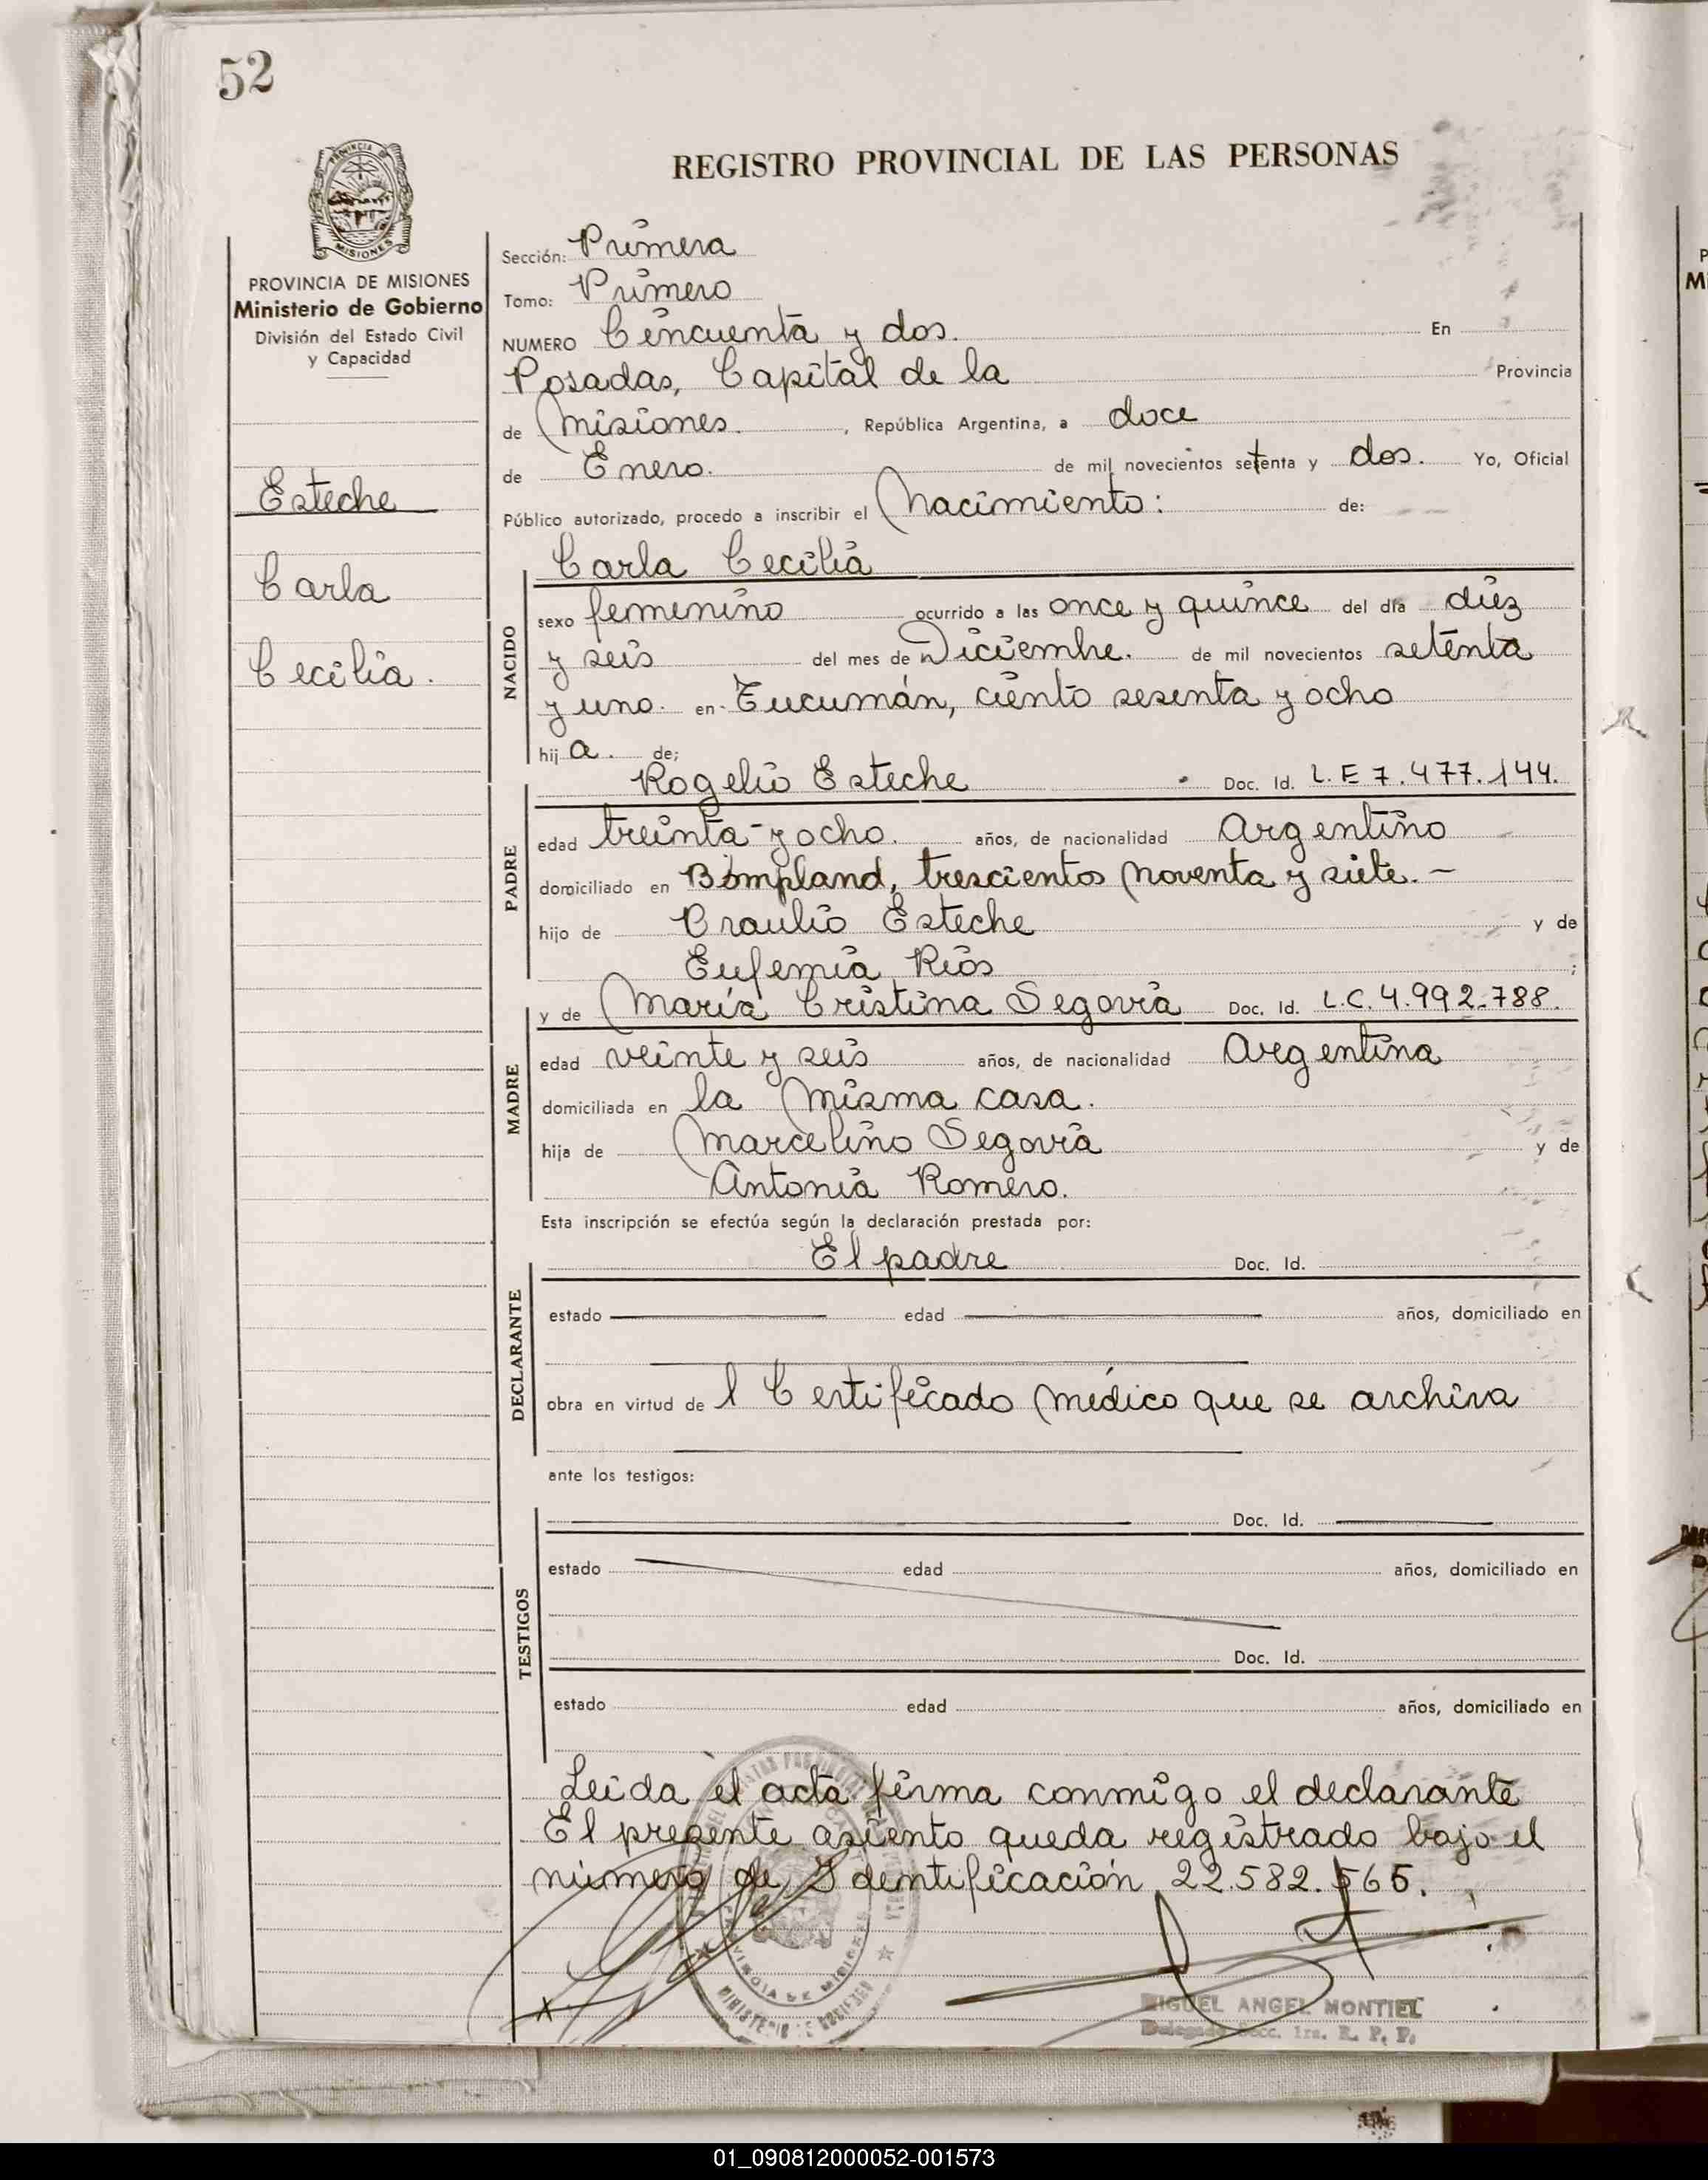 52
REGISTRO PROVINCIAL DE LAS PERSONAS
PROVINCIA DE MISIONES
Ministerio de Gobierno
División del Estado Civil
y Capacidad
Esteche
Carla
Cecilia.
Sección: Primera
Tomo: Primero
NUMERO Cincuenta y dos. En
Posadas, Capital de la Provincia
de Misiones. , República Argentina, a doce
de Enero. de mil novecientos setenta y dos. Yo, Oficial
Público autorizado, procedo a inscribir el Nacimiento: de:
Carla Cecilia
NACIDO
sexo femenino ocurrido a las once y quince del día diez
y seis del mes de Diciembre. de mil novecientos setenta
y uno. en Tucumán, ciento sesenta y ocho
hij a. de;
PADRE
Rogelio Esteche Doc. Id. L.E 7.477.144.
edad treinta y ocho. años, de nacionalidad Argentino
domiciliado en Bompland, trescientos noventa y siete. -
hijo de Braulio Esteche y de
Eufemia Rios ;
MADRE
y de María Cristina Segovia Doc. Id. L.C. 4.992.788.
edad veinte y seis años, de nacionalidad Argentina
domiciliada en la misma casa.
hija de Marcelino Segovia y de
Antonia Romero.
Esta inscripción se efectúa según la declaración prestada por:
DECLARANTE
El padre Doc. Id.
estado edad años, domiciliado en
obra en virtud de l Certificado médico que se archiva
ante los testigos:
TESTIGOS
Doc. Id.
estado edad años, domiciliado en
Doc. Id.
estado edad años, domiciliado en
Leida el acta firma conmigo el declarante
El presente asiento queda registrado bajo el
número de Identificación 22.582.565.
MIGUEL ANGEL MONTIEL
Delegado Secc. 1ra. R. P. P.
01_090812000052-001573